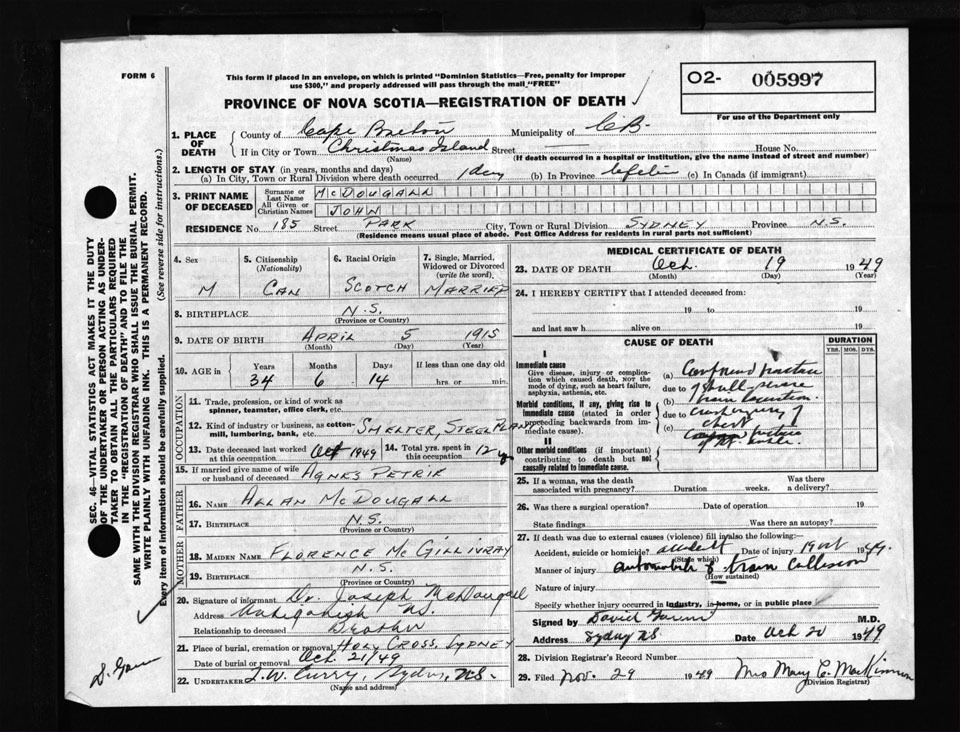 FORM 6
This form if placed in an envelope, on which is printed "Dominion Statistics—Free, penalty for improper
use $300," and properly addressed will pass through the mail "FREE"
O2- 005997
For use of the Department only
PROVINCE OF NOVA SCOTIA—REGISTRATION OF DEATH ✓
1. PLACE OF DEATH
County of Cape Breton Municipality of C.B.
If in City or Town Christmas Island Street — House No.
(Name) (If death occurred in a hospital or institution, give the name instead of street and number)
2. LENGTH OF STAY (in years, months and days)
(a) In City, Town or Rural Division where death occurred 1 day (b) In Province Lifetime (c) In Canada (if immigrant)
3. PRINT NAME OF DECEASED
Surname or Last Name McDOUGALL
All Given or Christian Names JOHN
RESIDENCE No. 185 Street PARK City, Town or Rural Division SYDNEY Province N.S.
(Residence means usual place of abode. Post Office Address for residents in rural parts not sufficient)
4. Sex M
5. Citizenship (Nationality) CAN
6. Racial Origin SCOTCH
7. Single, Married, Widowed or Divorced (write the word) MARRIED
8. BIRTHPLACE N.S.
(Province or Country)
9. DATE OF BIRTH APRIL 5 1915
(Month) (Day) (Year)
10. AGE in Years 34 Months 6 Days 14 If less than one day old hrs. or min.
OCCUPATION
11. Trade, profession, or kind of work as spinner, teamster, office clerk, etc.
12. Kind of industry or business, as cotton-mill, lumbering, bank, etc. SMELTER, STEEL PLANT
13. Date deceased last worked at this occupation Oct 1949
14. Total yrs. spent in this occupation 12 y
15. If married give name of wife or husband of deceased AGNES PETRIE
FATHER
16. NAME ALLAN McDOUGALL
17. BIRTHPLACE N.S.
(Province or Country)
MOTHER
18. MAIDEN NAME FLORENCE McGILLIVRAY
19. BIRTHPLACE N.S.
(Province or Country)
20. Signature of informant Dr. Joseph McDougall
Address Antigonish NS.
Relationship to deceased Brother
21. Place of burial, cremation or removal HOLY CROSS, SYDNEY
Date of burial or removal Oct 21/49
22. UNDERTAKER T.W. Curry, Sydney, N.S.
(Name and address)
MEDICAL CERTIFICATE OF DEATH
23. DATE OF DEATH Oct. 19 1949
(Month) (Day) (Year)
24. I HEREBY CERTIFY that I attended deceased from:
19 to 19
and last saw h alive on 19
CAUSE OF DEATH
DURATION
YRS. MOS. DYS.
I
Immediate cause
Give disease, injury or complication which caused death, NOT the mode of dying, such as heart failure, asphyxia, asthenia, etc.
(a) Compound fracture
due to of skull - severe
Morbid conditions, if any, giving rise to immediate cause (stated in order proceeding backwards from immediate cause).
(b) brain laceration
due to crushing injury of
(c) chest
II
Other morbid conditions (if important) contributing to death but not causally related to immediate cause.
fracture
25. If a woman, was the death associated with pregnancy? Duration weeks. Was there a delivery?
26. Was there a surgical operation? Date of operation 19
State findings Was there an autopsy?
27. If death was due to external causes (violence) fill in also the following:
Accident, suicide or homicide? accident Date of injury 19 Oct 1949.
(State which)
Manner of injury automobile & train collision
(How sustained)
Nature of injury
Specify whether injury occurred in industry, in home, or in public place
Signed by David M.D.
Address Sydney NS Date Oct 20 1949
28. Division Registrar's Record Number
29. Filed Nov. 29 1949 Mrs Mary C. MacKinnon
(Division Registrar)
SEC. 46—VITAL STATISTICS ACT MAKES IT THE DUTY
OF THE UNDERTAKER OR PERSON ACTING AS UNDER-
TAKER TO OBTAIN ALL THE PARTICULARS REQUIRED
IN THE "REGISTRATION OF DEATH" AND TO FILE THE
SAME WITH THE DIVISION REGISTRAR WHO SHALL ISSUE THE BURIAL PERMIT.
WRITE PLAINLY WITH UNFADING INK. THIS IS A PERMANENT RECORD.
Every item of information should be carefully supplied. (See reverse side for instructions.)